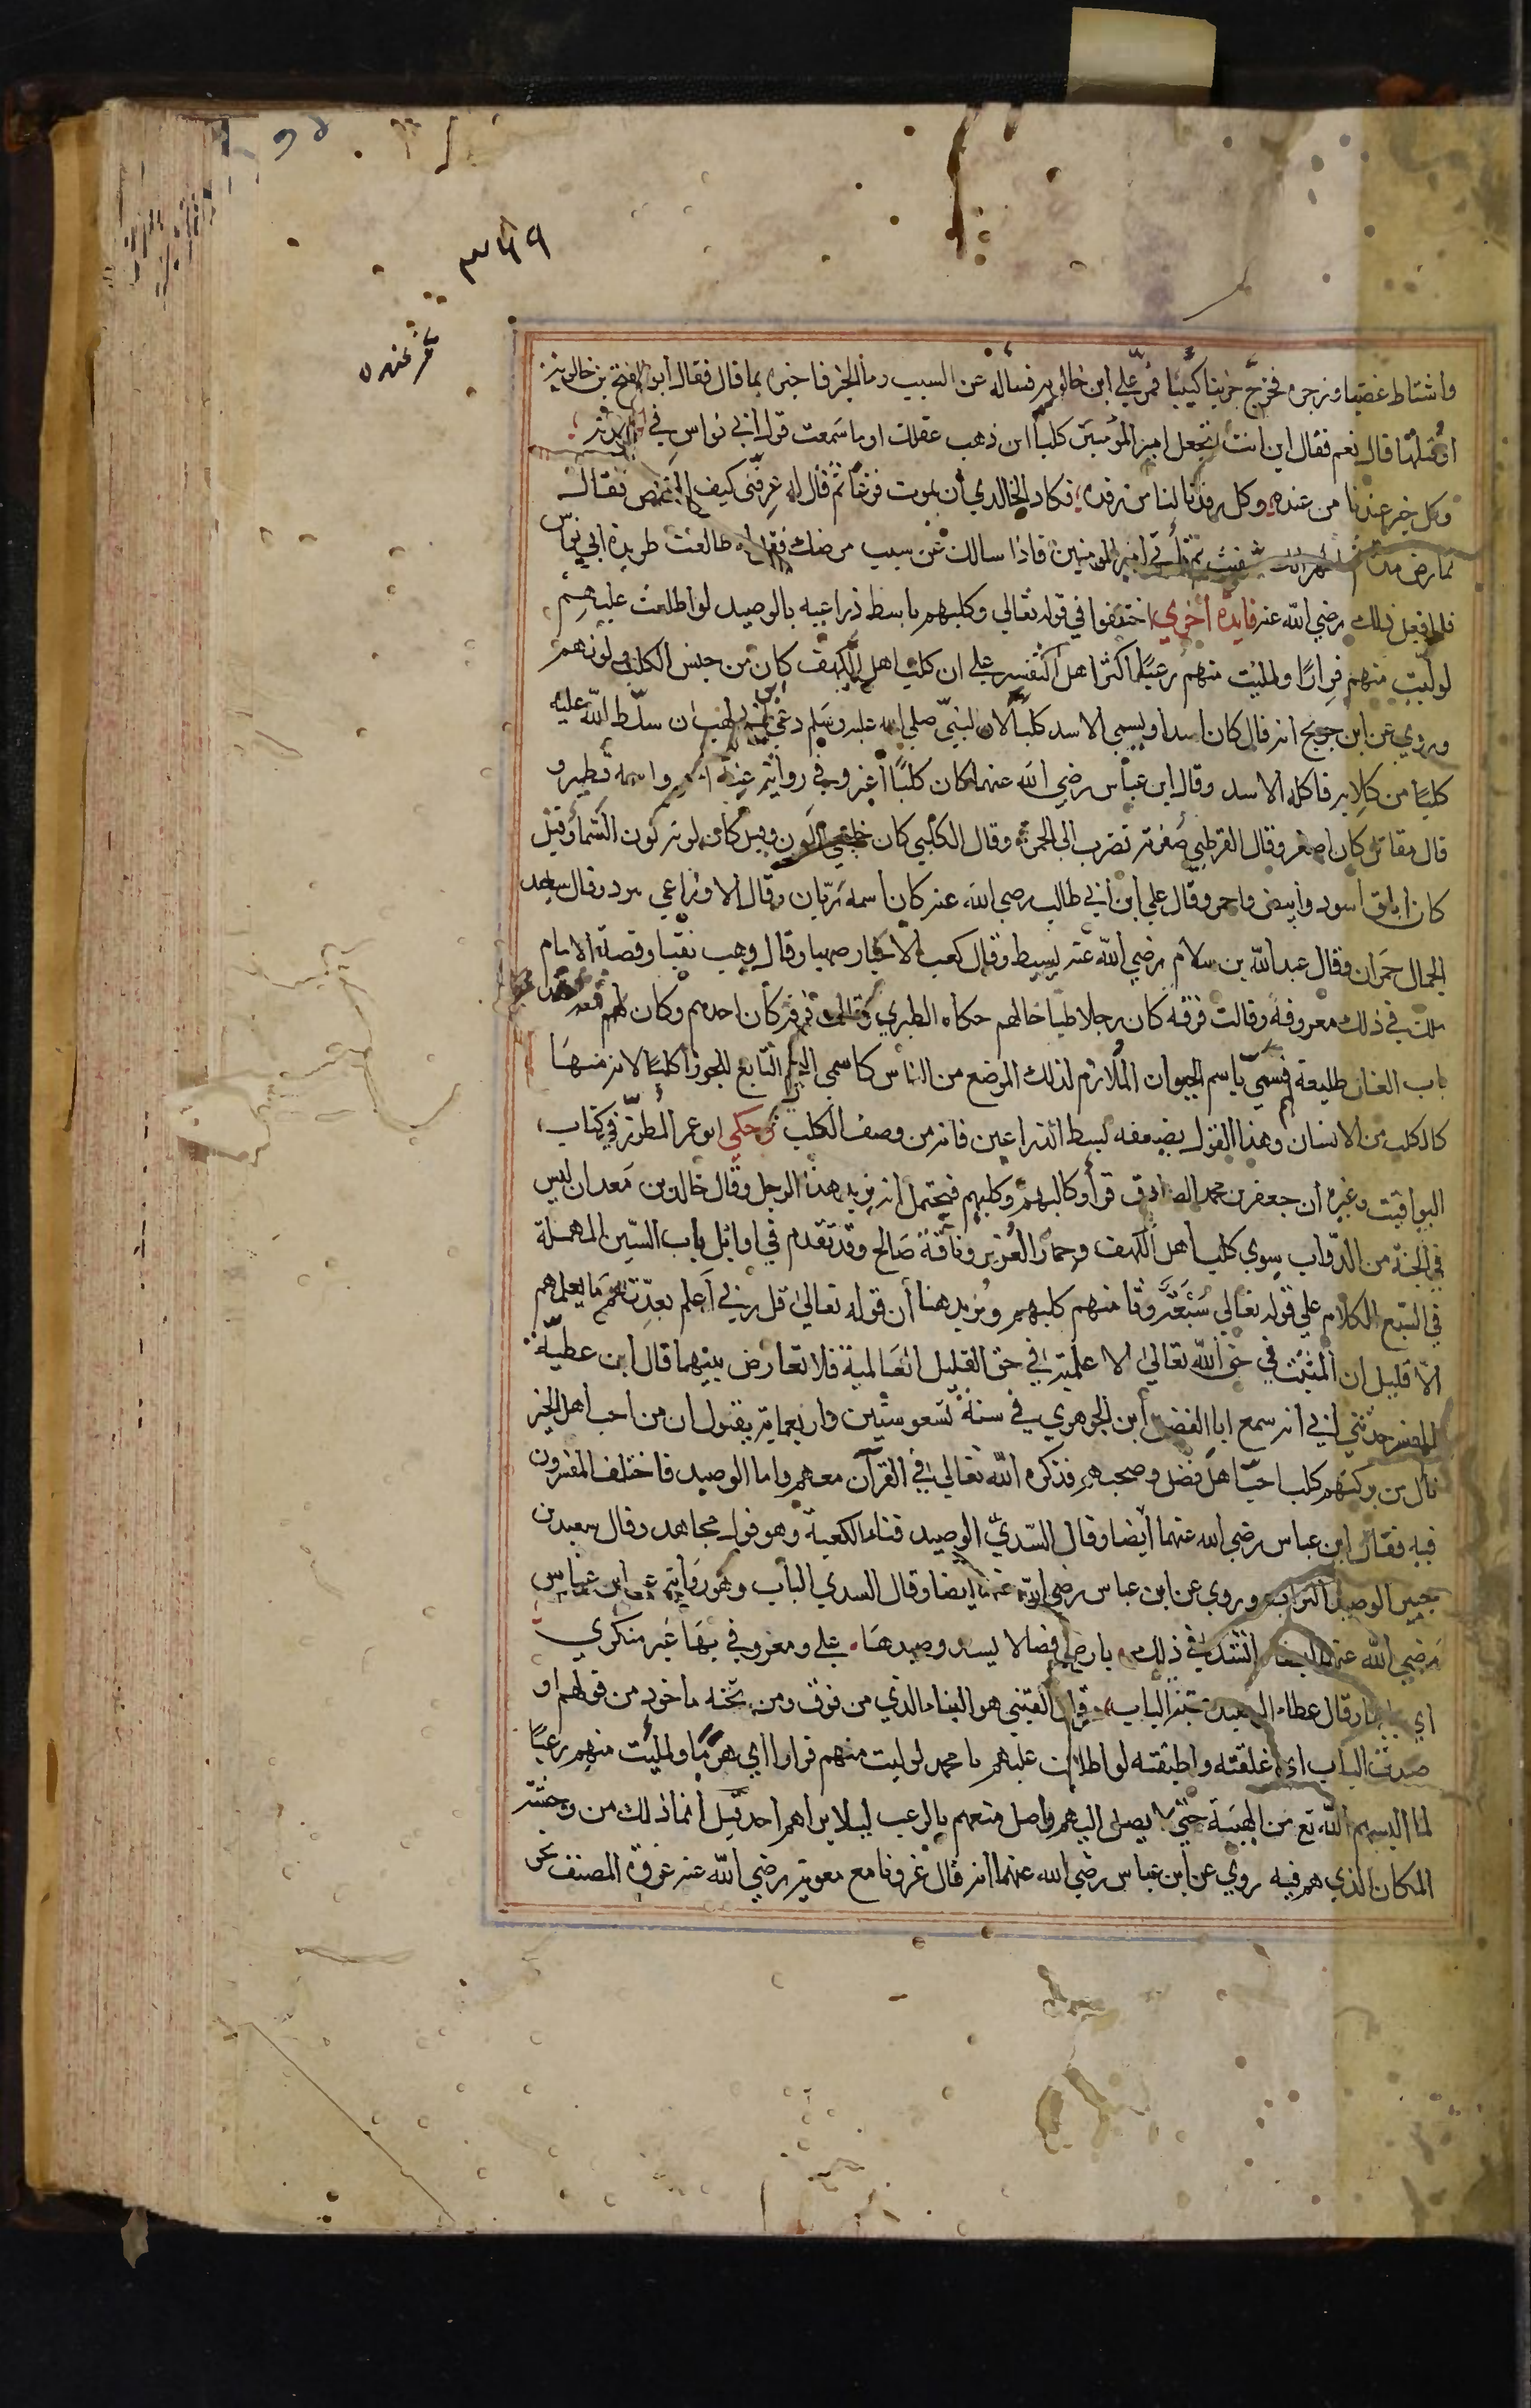 ٣٤٩
واشتاط غضبا وزجره فخرج حزينا كئيبا فمر علي ابن خالويه فساله عن السبب وما الخبر فاخبره بما قال فقال ابن خالويه
اوقلتها قال نعم فقال اين انت تجعل امير المؤمنين كلبا اين ذهب عقلك اوما سمعت قول ابي نواس في
وكل خير عندنا من عنده وكل رفدنا لنا من رفده فكاد الخالدي أن يموت فزعا ثم قال له عرفني كيف فقال
تمارض شفيت أمير المومنين فاذا سالك عن سبب مرضك طالعت طريدة ابي نواس
فلما فعل ذلك رضي الله عنه فايدة أخري اختلفوا في قوله تعالي وكلبهم باسط ذراعيه بالوصيد لو اطلعت عليهم
لوليت منهم فرارًا ولمليت منهم رعبًا اكثر اهل التفسير علي ان كلب اهل الكهف كان من جنس الكلاب
وروي عن ابن جريج انه قال كان أسدا ويسمي الاسد كلبا لان النبي صلي الله عليه وسلم دعي لهب ان سلط الله عليه
كلبًا من كلابه فاكله الاسد وقال ابن عباس رضي الله عنهما كان كلبًا اغر وفي رواية عنه واسمه قطير و
قال مقاتل كان اصفر وقال القرطبي صفرته تضرب الي الحمرة وقال الكلبي كان اللون وقيل كان لونه كلون السماء وقيل
كان ابلق اسود وأبيض واحمر وقال علي ابن ابي طالب رضي الله عنه كان اسمه ريان وقال الاوزاعي
الجمال حمران وقال عبد الله بن سلام رضي الله عنه بسيط وقال كعب الاحبار صهبا وقال وهب نقيا وقصة الامام
في ذلك معروفة وقالت فرقة كان رجلا طباخا لهم حكاه الطبري وقالت فرقة كان احدهم وكان قعد
باب الغار طليعة فسمي باسم الحيوان الملازم لذلك الموضع من الناس كما سمي النجم التابع للجوزا كلبًا لانه منها
كالكلب من الانسان وهذا القول يضعفه بسط الذراعين فانه من وصف الكلب وحكي ابو عمر المطرز في كتاب
اليواقيت وغيره أن جعفر بن محمد الصادق قرأ وكالبهم وكلبهم فيحتمل انه يريد هذا الرجل وقال خالد بن معدان ليس
في الجنة من الدواب سوي كلب أهل الكهف وحمار العزير وناقة صالح وقد تقدم في اوائل باب السين المهملة
في السبع الكلام علي قوله تعالي سبعة وثامنهم كلبهم ونزيد هنا أن قوله تعالي قل ربي أعلم بعدتهم ما يعلمهم
الا قليل ان المثبت في حق الله تعالي الا علمية في حق القليل العالمية فلا تعارض بينهما قال ابن عطية
المفسر حدثني أبي انه سمع ابا الفضل ابن الجوهري في سنة تسع وستين واربعماية يقول ان من احب اهل الخير
نال من بركتهم كلب احب اهل فضل وصحبهم فذكره الله تعالي في القرآن معهم واما الوصيد فاختلف المفسرون
فيه فقال ابن عباس رضي الله عنهما أيضا وقال السدي الوصيد فناء الكعبة وهو قول مجاهد وقال سعيد بن
جبير الوصيد التراب وروي عن ابن عباس رضي الله عنهما ايضا وقال السدي الباب وهو رواية عن ابن عباس
رضي الله عنهما ايضا انشد في ذلك بارض فضا لا يسد وصيدها علي ومعروفي بها غير منكري
اي بابها وقال عطاء الوصيد عتبة الباب وقال القتبي هو البناء الذي من فوق ومن تحته ماخوذ من قولهم او
صدت الباب اي اغلقته واطبقته لو اطلعت عليهم يا محمد لوليت منهم فرارا اي هربًا ولمليت منهم رعبًا
لما البسهم الله تع من الهيبة حتي لا يصل اليهم واصل منعهم بالرعب ليلا يراهم احد قيل انما ذلك من وحشة
المكان الذي هم فيه روي عن ابن عباس رضي الله عنهما انه قال غزونا مع معوية رضي الله عنه غزوة المصنف نحو